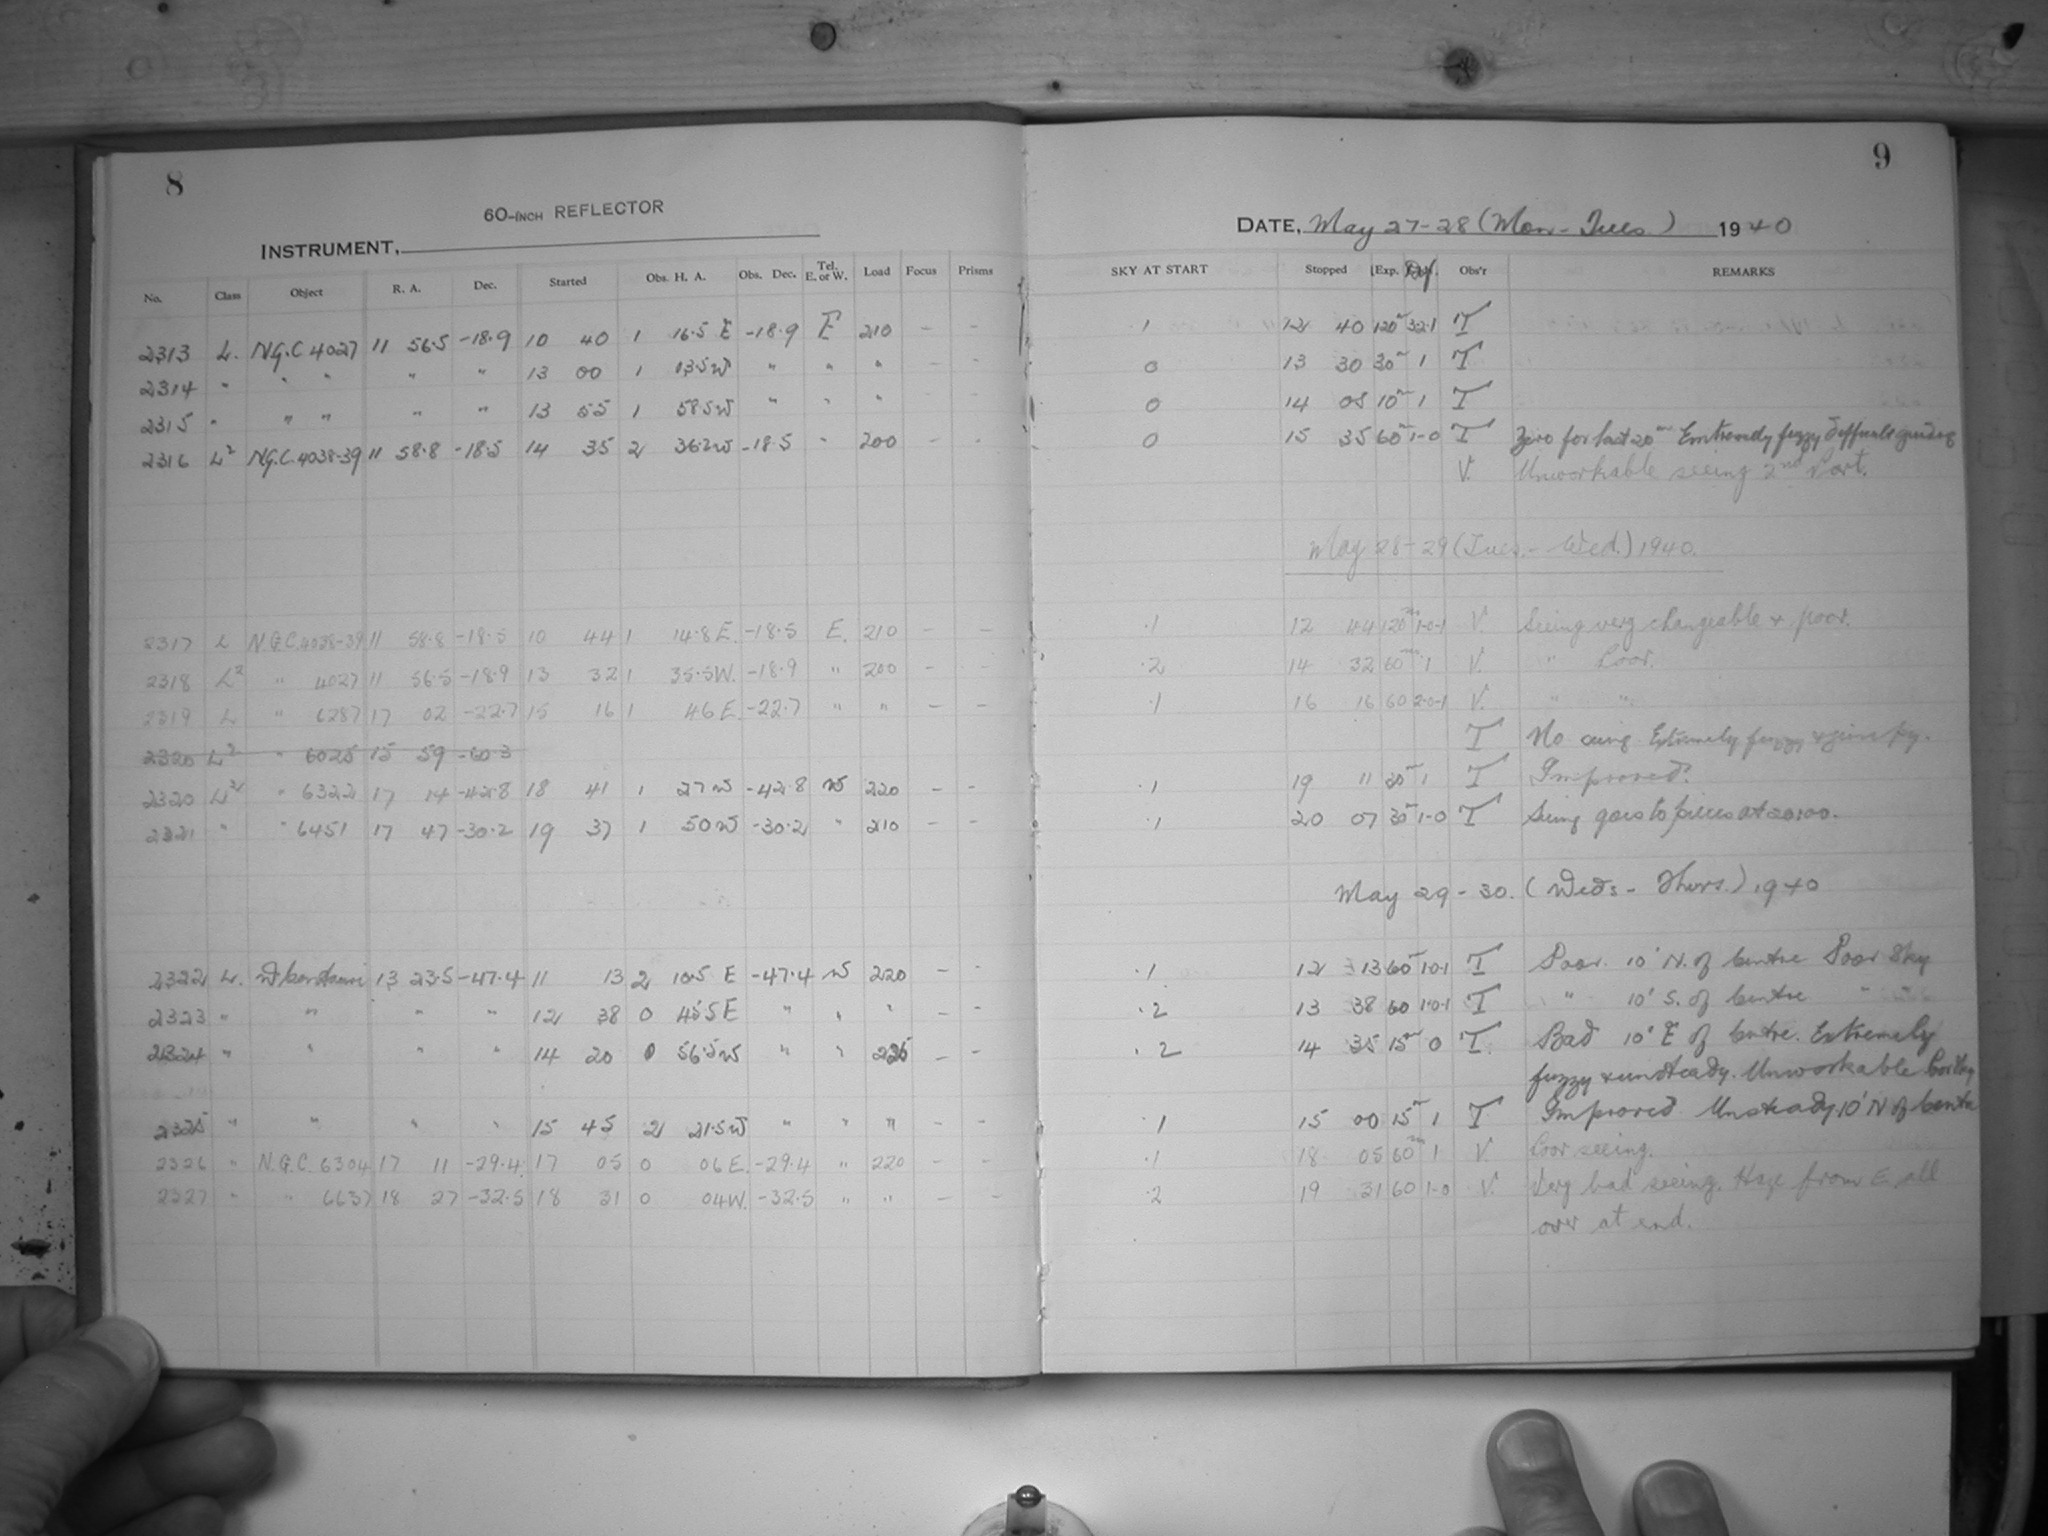 8
60-INCH REFLECTOR
INSTRUMENT,
No. Class Object R. A. Dec. Started Obs. H. A. Obs. Dec. Tel. E. or W. Load Focus Prisms
2313 L. N.G.C 4027 11 56.5 -18.9 10 40 1 16.5 E -18.9 E 210 - -
2314 " " " " " 13 00 1 13.5 W " " " - -
2315 " " " " " 13 55 1 58.5 W " " " - -
2316 L2 N.G.C. 4038-39 11 58.8 -18.5 14 35 2 36.2 W -18.5 " 200 - -
2317 L N.G.C. 4038-39 11 58.8 -18.5 10 44 1 14.8 E. -18.5 E. 210 - -
2318 L2 " 4027 11 56.5 -18.9 13 32 1 35.5 W. -18.9 " 200 - -
2319 L " 6287 17 02 -22.7 15 16 1 46 E -22.7 " " - -
2320 L2 " 6025 15 59 -60.3
2320 L2 " 6322 17 14 -42.8 18 41 1 27 W -42.8 W 220 - -
2321 " " 6451 17 47 -30.2 19 37 1 50 W -30.2 " 210 - -
2322 L. 13 23.5 -47.4 11 13 2 10.5 E -47.4 W 220 - -
2323 " " " " 12 38 0 45.5 E " " " - -
2324 " " " " 14 20 0 56.5 W " " 225 - -
2325 " " " " 15 45 2 21.5 W " " "
2326 " N.G.C. 6304 17 11 -29.4 17 05 0 06 E. -29.4 " 220 - -
2327 " " 6637 18 27 -32.5 18 31 0 04 W. -32.5 " " - -
9
DATE, May 27-28 (Mon-Tues) 1940
SKY AT START Stopped Exp. Def. Obs'r REMARKS
.1 12 40 120m 3.2.1 T
0 13 30 30m 1 T
0 14 05 10m 1 T
0 15 35 60m 1-0 T Zero for last 20m Extremely fuzzy Difficult guiding
V. Unworkable seeing 2nd Part.
May 28-29 (Tues.- Wed.) 1940.
.1 12 44 120m 1-0-1 V. Seeing very changeable & poor.
.2 14 32 60m 1 V. " Poor.
.1 16 16 60 2-0-1 V. " "
T No Extremely fuzzy &
.1 19 11 30m 1 T Improved.
.1 20 07 30m 1-0 T Seeing goes to pieces at 20:00.
May 29-30. (Weds - Thurs.) 1940
.1 12 13 60m 1-0-1 T Poor. 10' N. of Centre Poor Sky
.2 13 38 60 1-0-1 T " 10' S. of Centre " "
.2 14 35 15m 0 T. Bad 10' E of Centre. Extremely
fuzzy & unsteady. Unworkable
.1 15 00 15m 1 T Improved Unsteady 10' N of Centre
.1 18 05 60m 1 V. Poor seeing.
.2 19 31 60 1-0 V. Very bad seeing. Haze from E. all
over at end.